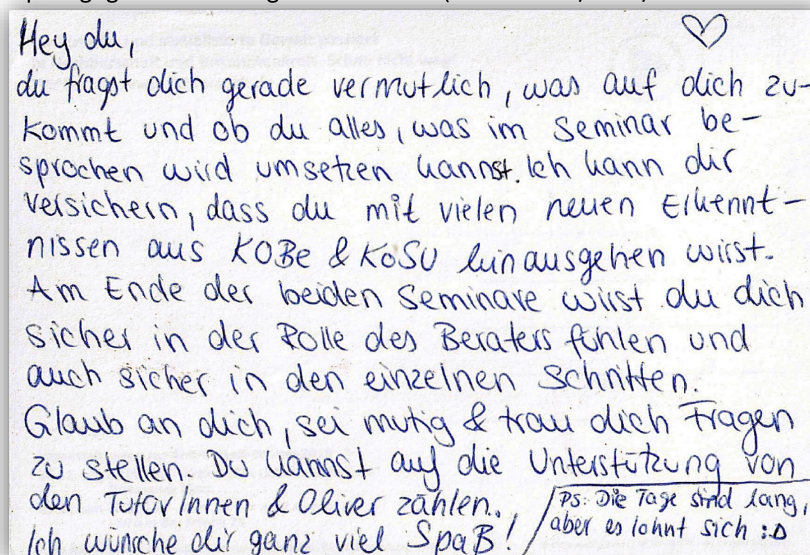 Hey du,
du fragst dich gerade vermutlich, was auf dich zu-
kommt und ob du alles, was im Seminar be-
sprochen wird umsetzen kannst. Ich kann dir
versichern, dass du mit vielen neuen Erkennt-
nissen aus KOBe & KoSU hinausgehen wirst.
Am Ende der beiden Seminare wirst du dich
sicher in der Rolle des Beraters fühlen und
auch sicher in den einzelnen Schritten.
Glaub an dich, sei mutig & trau dich Fragen
zu stellen. Du kannst auf die Unterstützung von
den TutorInnen & Oliver zählen.
Ich wünsche dir ganz viel Spaß!
PS: Die Tage sind lang,
aber es lohnt sich :D